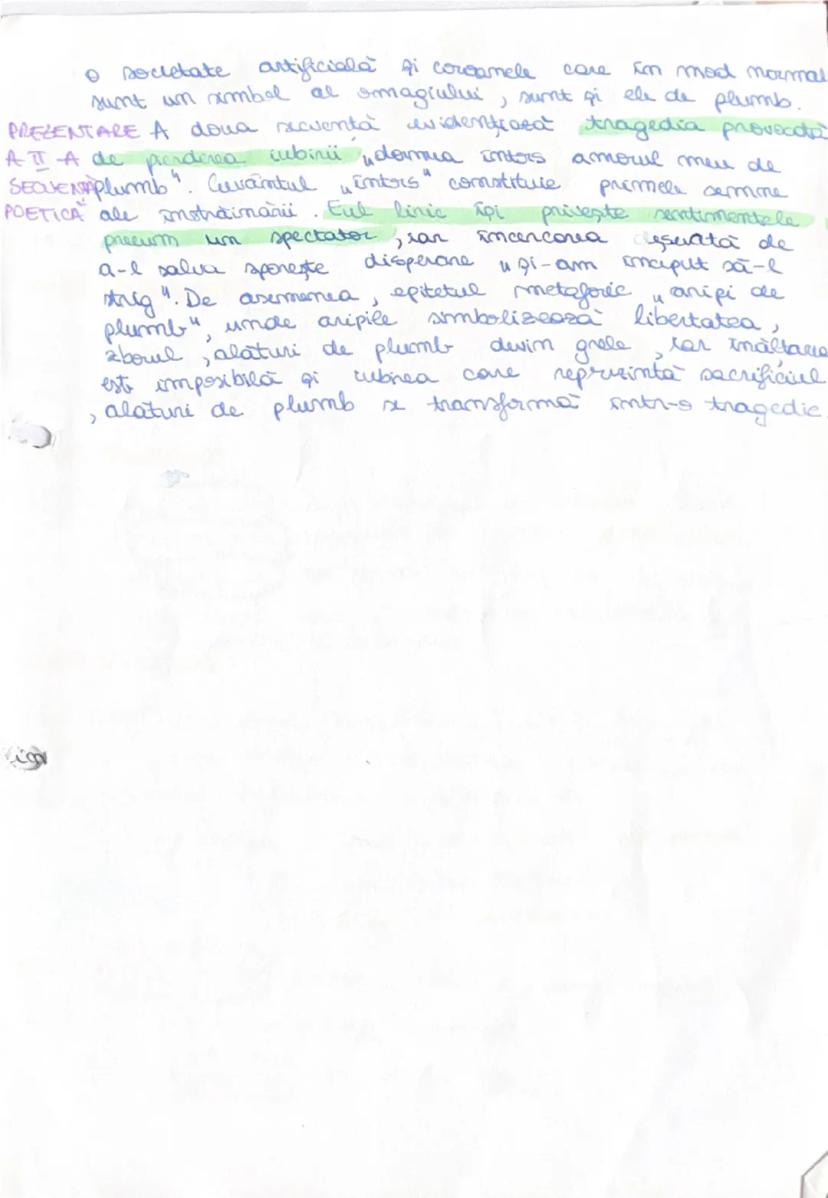 o societate artificială și coroanele care în mod normal
sunt un simbol al omagiului, sunt și ele de plumb.
PREZENTARE A doua secvență evidențiază tragedia provocată
A II-A de pierderea iubirii „dormea întors amorul meu de
SECVENȚĂ plumb". Cuvântul „întors" constituie primele semne
POETICĂ ale înstrăinării. Eul liric își privește sentimentele
precum un spectator, iar încercarea deșeartă de
a-l salva sporește disperare „și-am început să-l
strig". De asemenea, epitetul metaforic „aripi de
plumb", unde aripile simbolizează libertatea,
zborul, alături de plumb devin grele, iar înălțarea
este imposibilă și iubirea care reprezintă sacrificiul
, alături de plumb se transformă într-o tragedie.